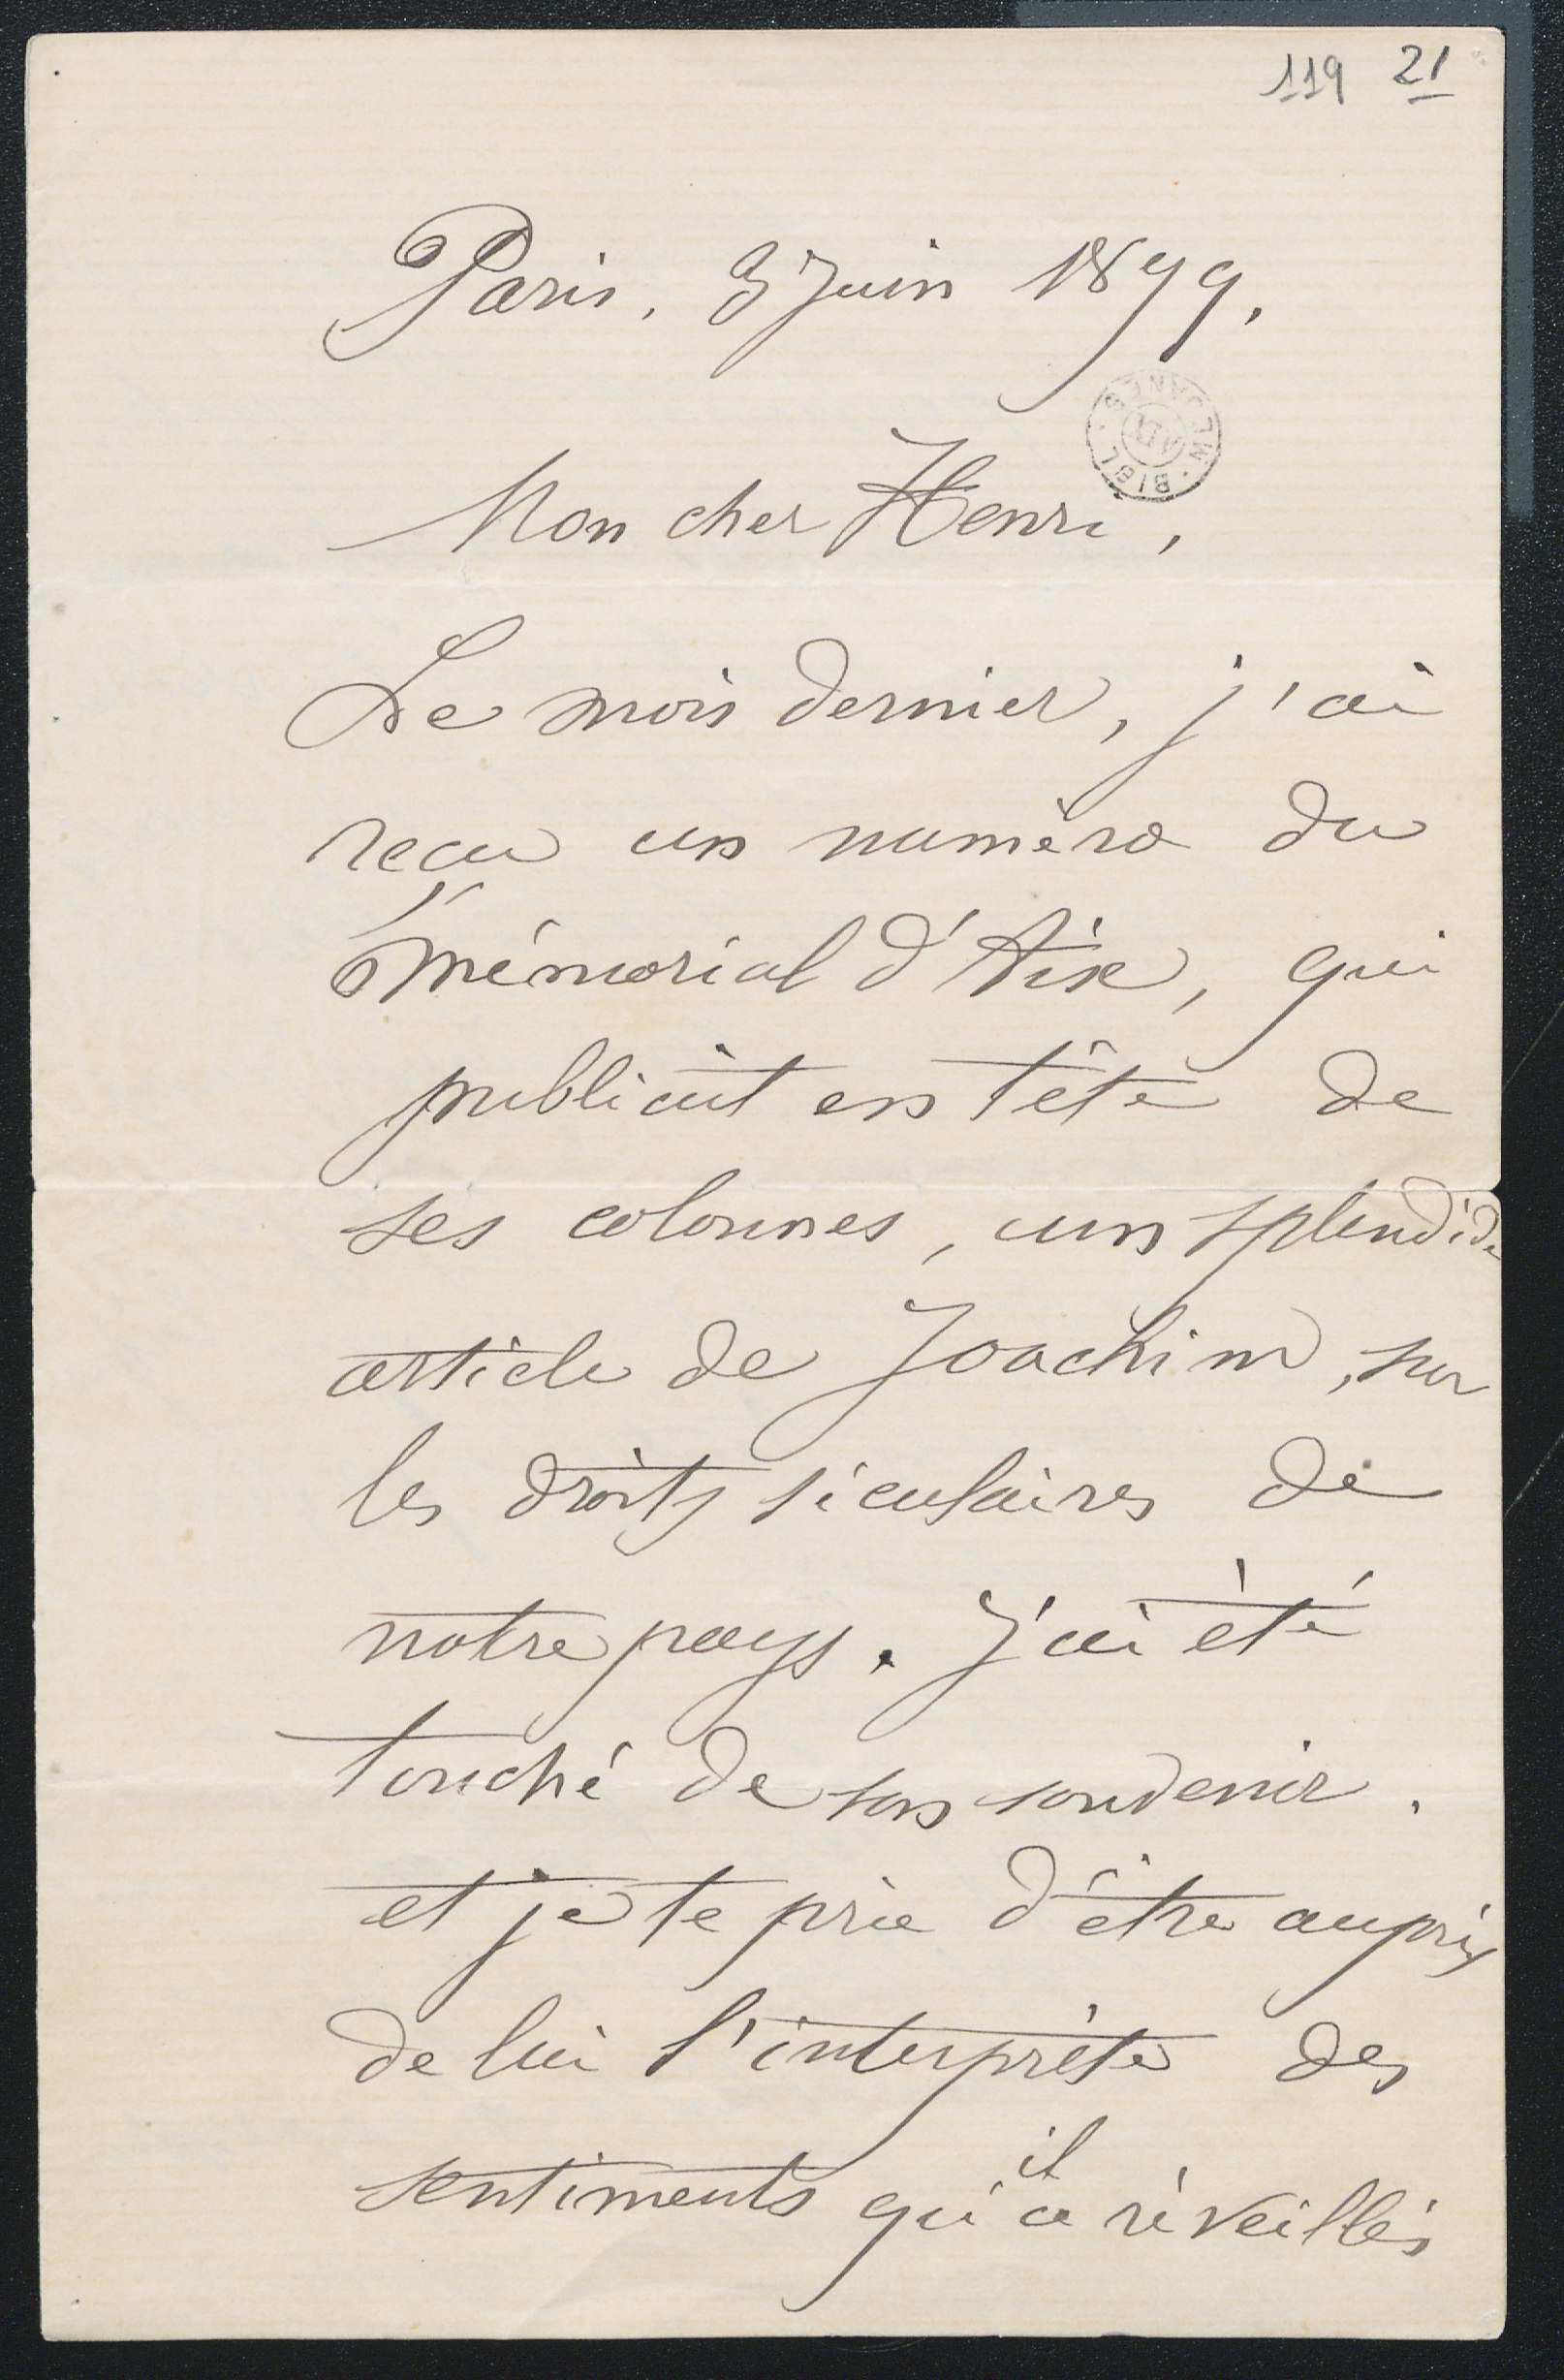 119 21
Paris, 3 Juin 1899.
BIBL. MEJANES AIX
Mon cher Henri,
Le mois dernier, j'ai
reçu un numéro du
Mémorial d'Aix, qui
publiait en tête de
ses colonnes, un splendide
article de Joachim, sur
les droits séculaires de
notre pays. J'ai été
touché de son souvenir.
et je te prie d'être auprès
de lui l'interprète des
il
sentiments qu'a réveillés